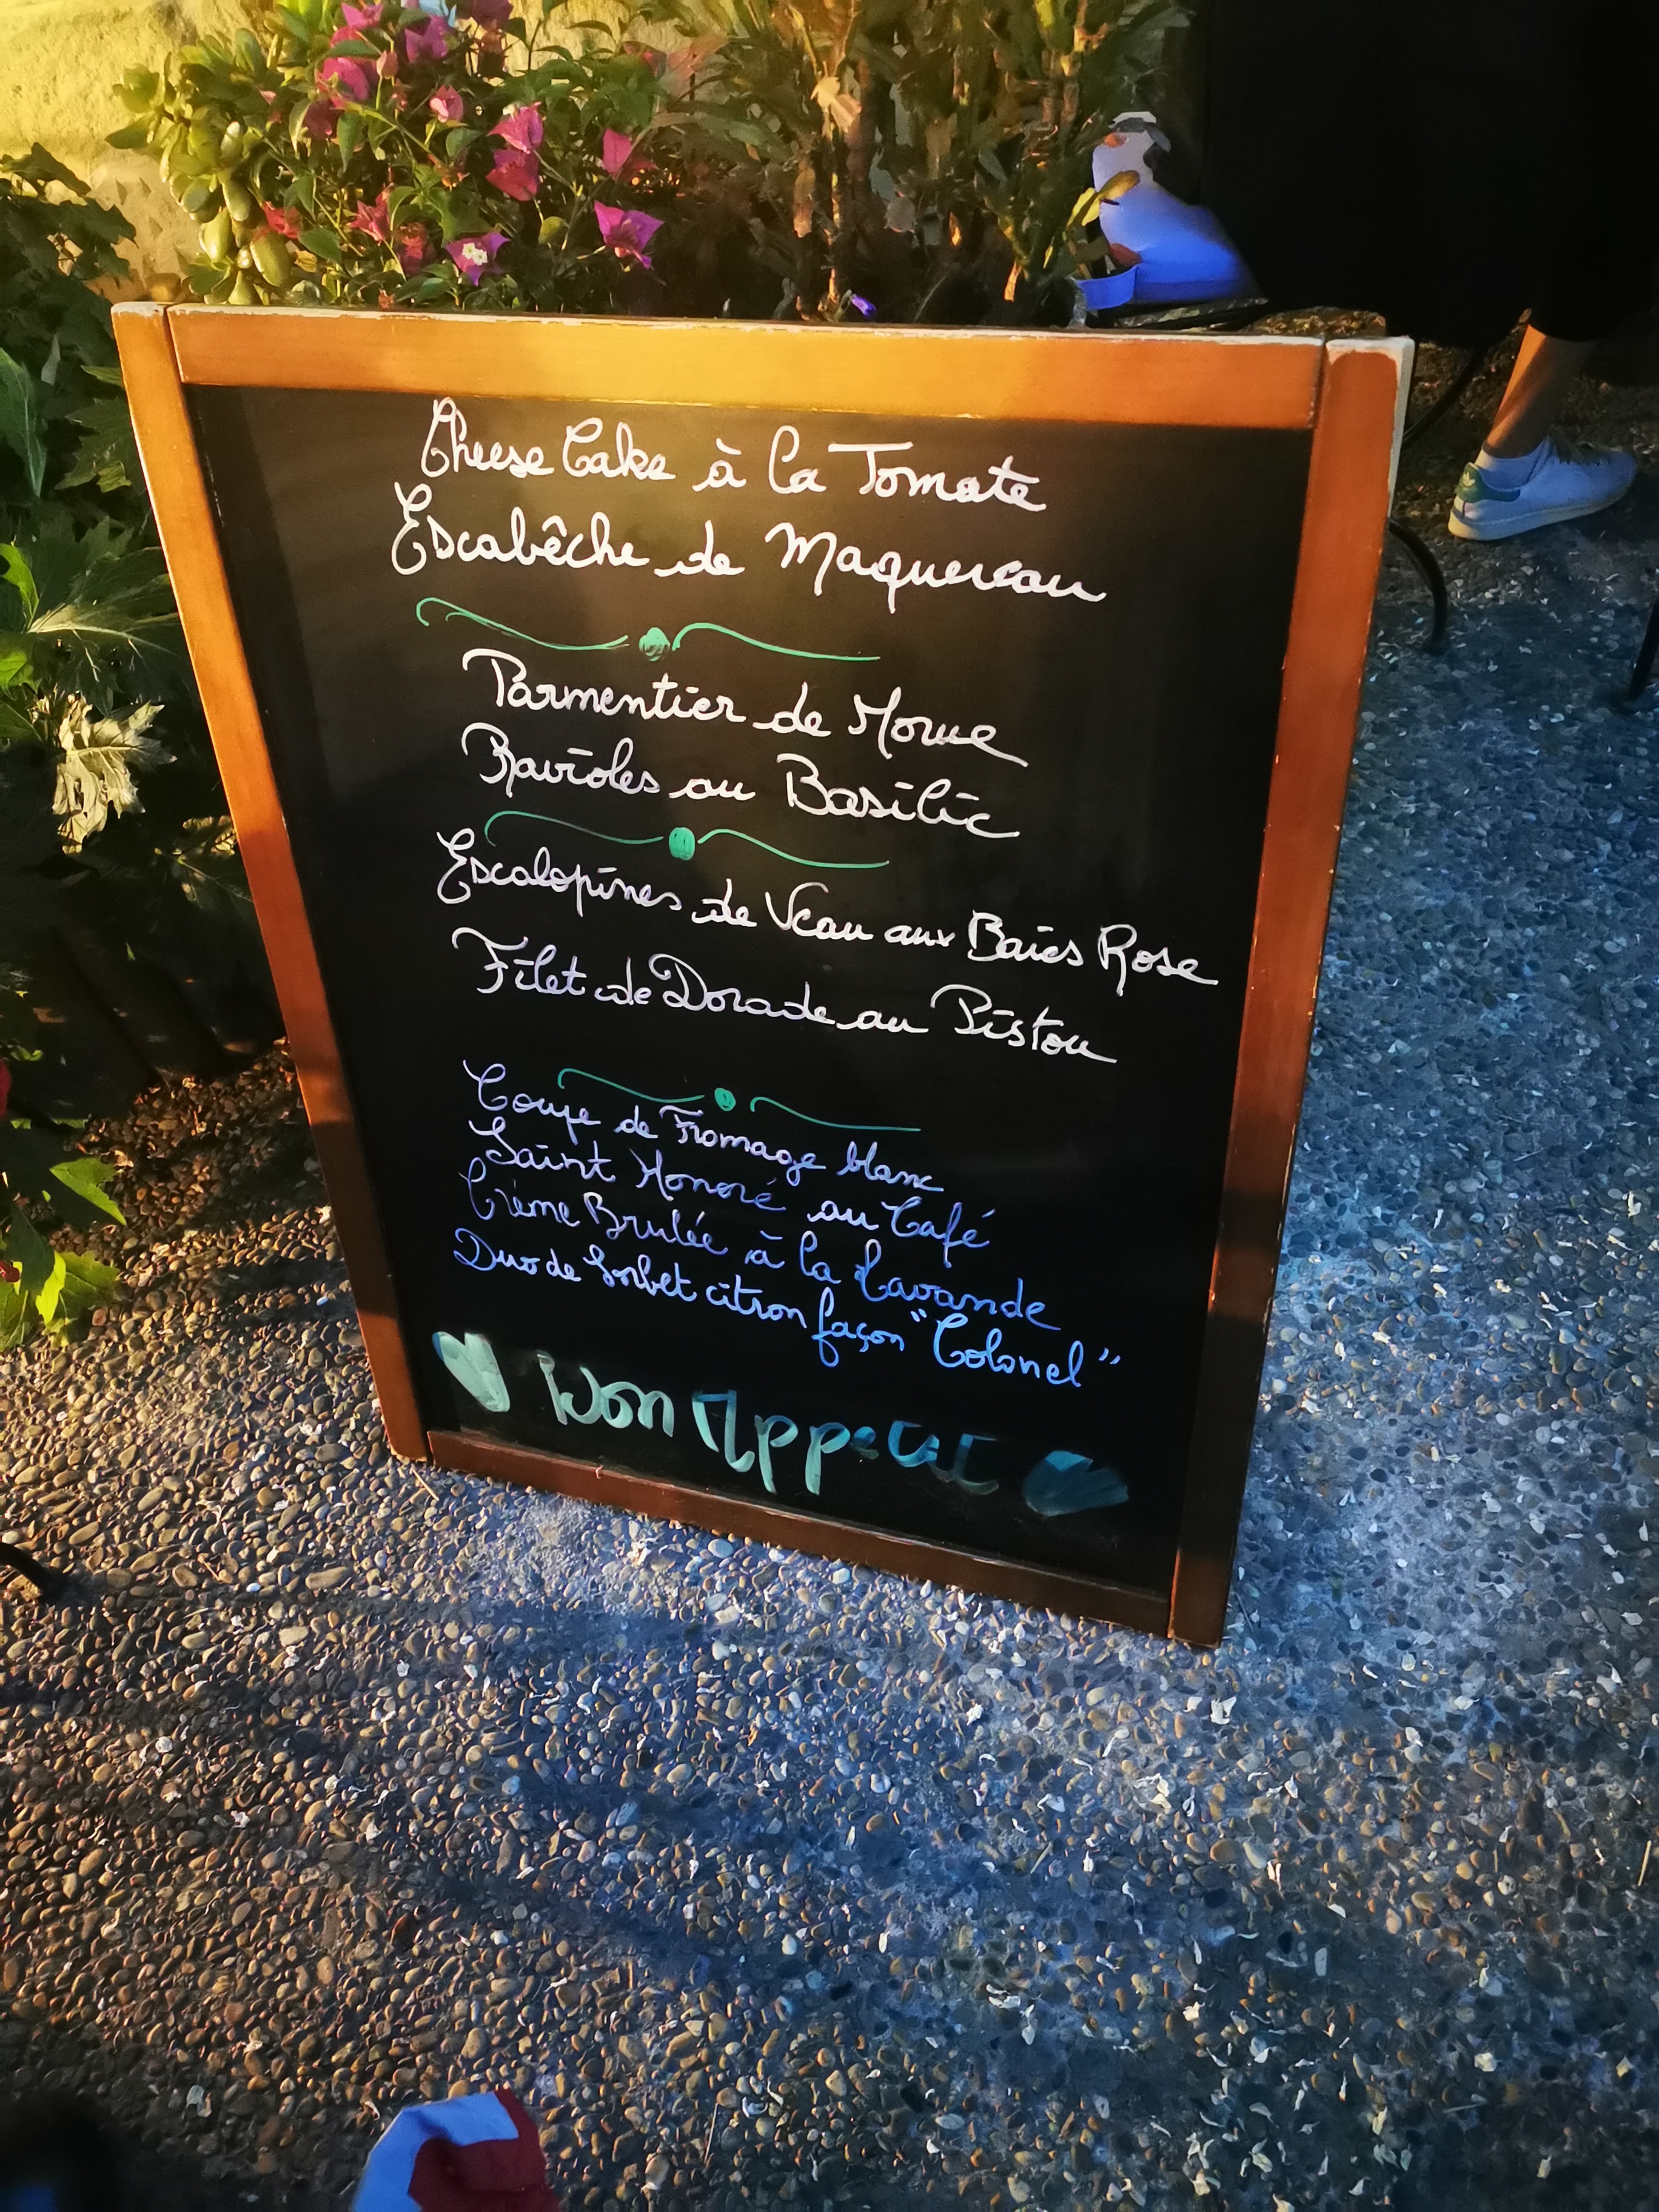 Cheese Cake à la Tomate
Escabêche de Maquereau
Parmentier de Morue
Ravioles au Basilic
Escalopines de Veau aux Baies Rose
Filet de Dorade au Pistou
Coupe de Fromage blanc
Saint Honoré au Café
Crème Brulée à la Lavande
Duo de Sorbet citron façon "Colonel"
Bon Appetit